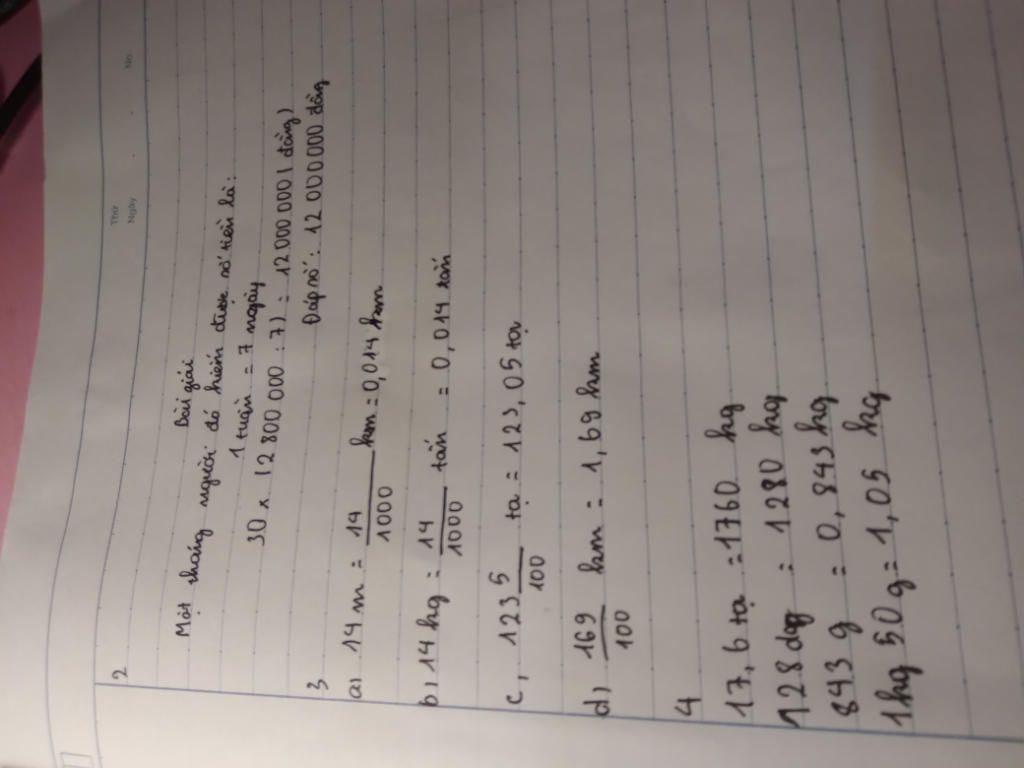 Thứ
Ngày
No.
2
Bài giải
Một tháng người đó kiếm được số tiền là:
1 tuần = 7 ngày
30 x (2 800 000 : 7) = 12 000 000 ( đồng)
Đáp số: 12 000 000 đồng
3
a) 14 m = 14/1000 km = 0,014 km
b) 14 kg = 14/1000 tấn = 0,014 tấn
c, 123 5/100 tạ = 123,05 tạ
d) 169/100 km = 1,69 km
4
17,6 tạ = 1760 kg
128 dag = 1280 kg
843 g = 0,843 kg
1kg 50 g = 1,05 kg